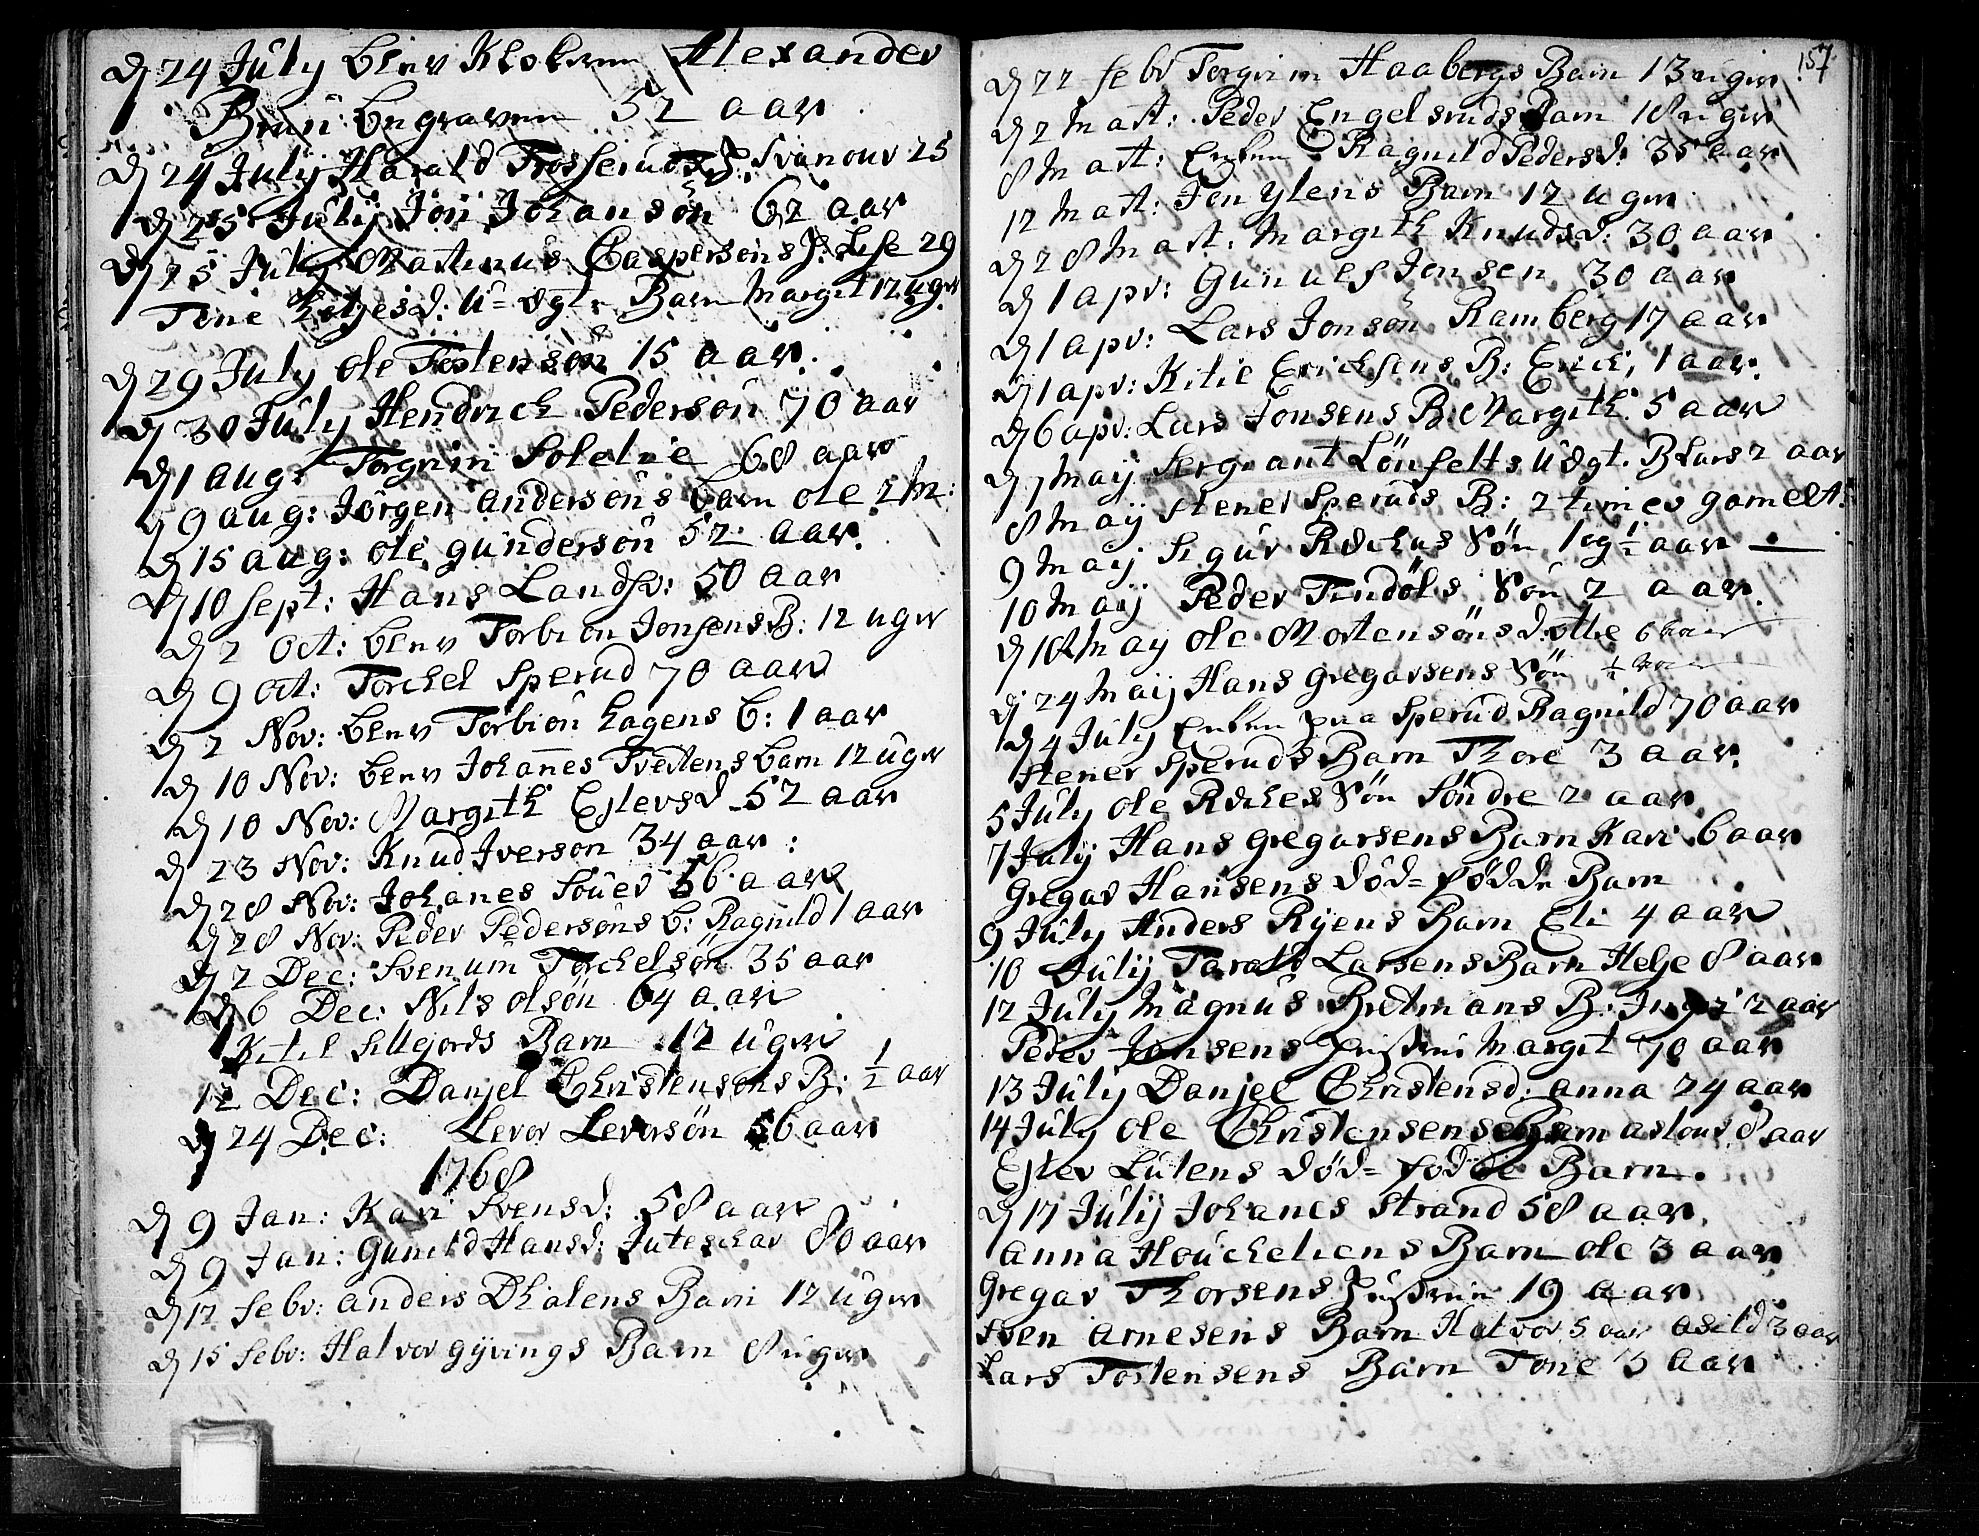 D 24 July blev Klokeren Alexander
Brun begraven 52 aar
D 24 July Harald Fosserud J: Svanouv 25
D 25 July Jon Johanson 62 aar
D 25 July Matinus Caspersøns J: Lise 29
Tone Ketjesd: U=ægte Barn Margit 12 uger
D 29 July Ole Tostensøn 15 aar.
D 30 July Hendrich Pedersøn 70 aar
D 1 aug: Torgrim Solelie 68 aar
D 9 aug: Jörgen Andersøns barn ole 2 M:
D 15 aug: ole gundersøn 52 aar.
D 10 Sept: Hans Landsv: 50 aar
D 2 Oct: blev Torbiøn Jonsens B: 12 uger
D 9 Oct: Torchel Sperud 70 aar
D 2 Nov: blev Torbiøn hagens b: 1 aar
D 10 Nov: blev Johannes Tvedtens barn 12 uger
D 10 Nov: Margith Ejlevsd 52 aar
D 23 Nov: Knud Iverson 34 aar:
D 28 Nov: Johanes 56 aar
D 28 Nov: Peder Pedersøns b: Ragnild 1 aar
D 2 Dec: Svenum Torchelsøn 35 aar
D 6 Dec: Nils olsøn 64 aar
Kitil Sillejords Barn 12 uger
12 Dec: Danjel Christensøns B: 1/2 aar
D 24 Dec: Levor Leversøn 56 aar
1768
D 9 Jan: Kari Svensd: 58 aar
D 9 Jan: Gunild Hansd: Juteschav 80 aar
D 12 febr: anders Dhalens Barn 12 uger
D 15 febr: Halvor gyvings Barn 8 uger
157
D 22 febr Torgrim Haabergs Barn 13 uger
D 2 Mart: Peder Engelsruds Barn 18 uger
8 Mart: Enken Ragnild Pedersd: 35 aar
12 Mart: Jen ylens Barn 12 uger
D 28 Mart: Margith Knudsd: 30 aar
D 1 apr: Gunulf Jonsen 30 aar
D 1 apr: Lars Jonsøn Ramberg 17 aar
D 1 apr: Kitil Erichsens B: Erich, 1 aar.
D 6 apr: Lars Jonsens B: Margith 5 aar
D 7 May Sergeant Lönfeldts Uægt. B Lars 2 aar
8 May Stener Speruds B: 2 timer gamelt.
9 May Sigur Søn 1 og 1/2 aar
10 May Peder Tindöls Søn 2 aar.
D 18 May Ole Mortensøns d: 6 aar
D 24 May Hans Gregarsens Søn 1/2 aar
D 4 July Enken paa Sperud Ragnild 70 aar
Stener Speruds Barn Thore 3 aar.
5 July Ole Søn Söndre 2 aar
7 July Hans Gregarsens Barn Kari 6 aar
Gregar Hansens död=fødde Barn
9 July Anders Ryens Barn Eli 4 aar
10 July Tarald Larsens Barn Helje 8 aar
12 July Magnus Bretmans B: 2 aar
Peder Jonsens Hustru Margit 70 aar
13 July Danjel Christensd: anna 24 aar
14 July ole Christensens Barn 8 aar
Ejlev Lutens död=fødde Barn.
D 17 July Johanes Strand 58 aar
Anna Houcheliens Barn ole 3 aar
Gregar Thorsens Hustrue 19 aar
Sven Arnesens Barn Halvor 5 aar Asild 3 aar
Lars Tostensens Barn Tone 3 aar